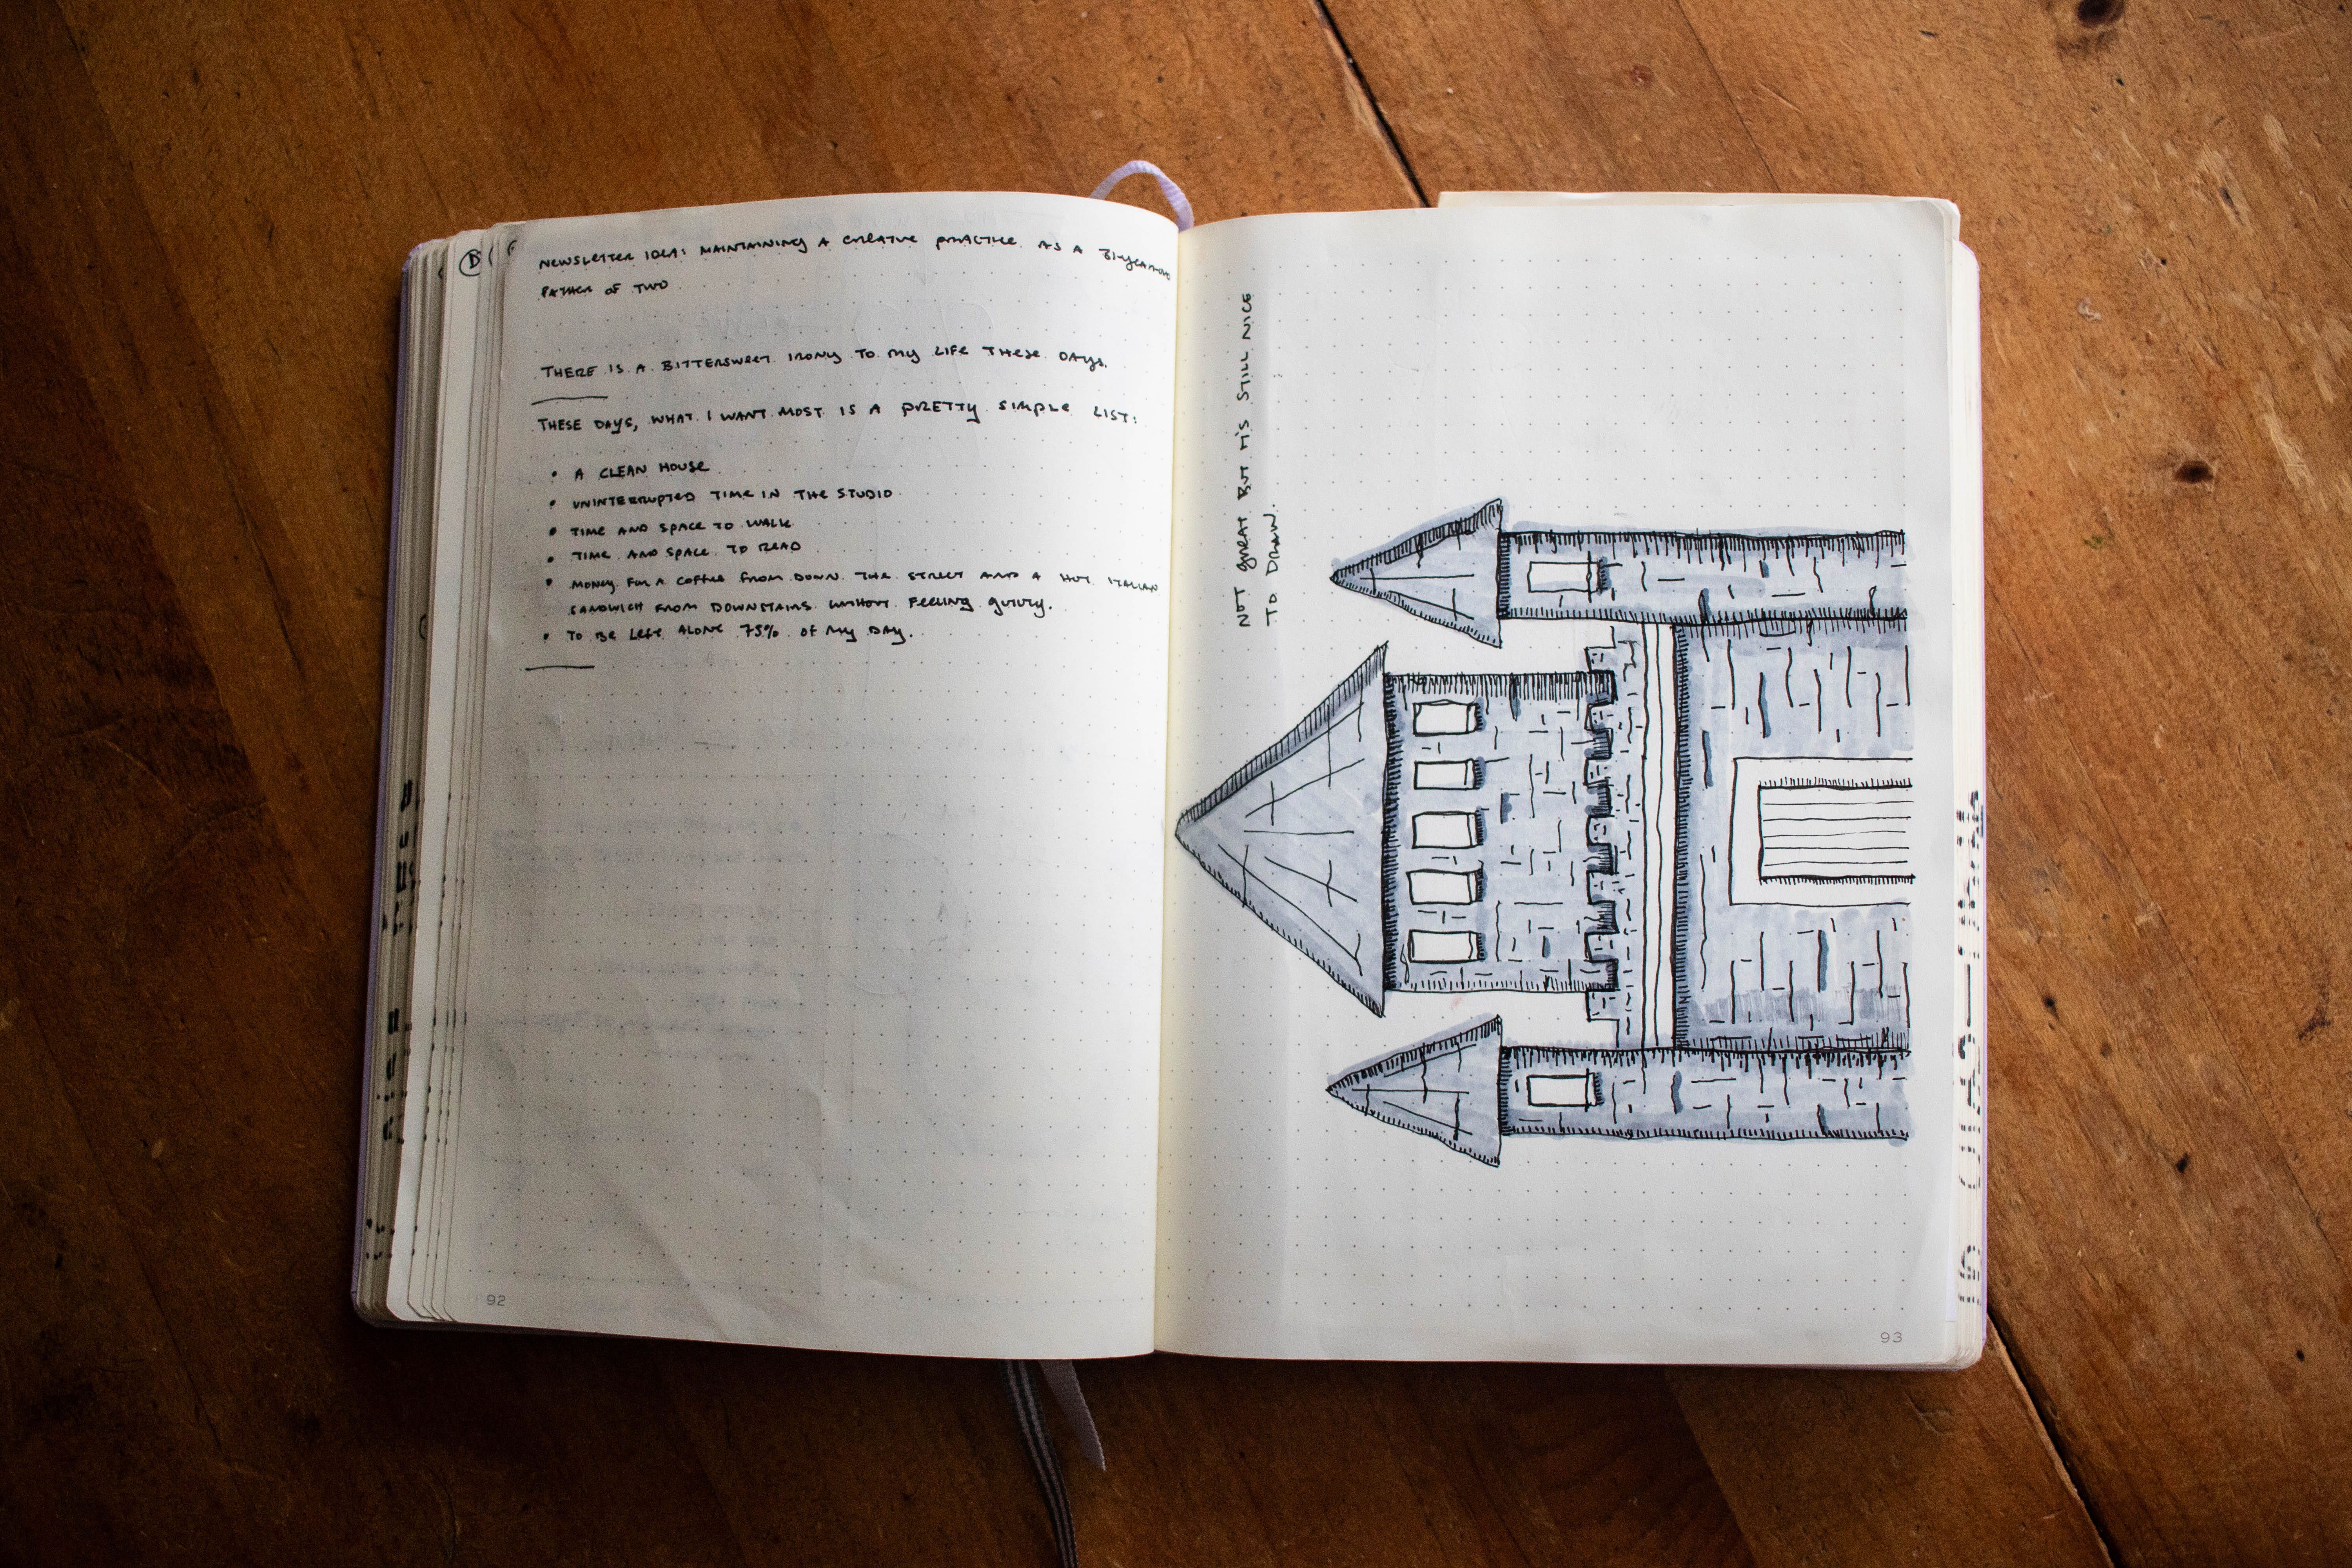 NEWSLETTER IDEA: MAINTAINING A CREATIVE PRACTICE AS A
FATHER OF TWO
THERE IS A BITTERSWEET IRONY TO MY LIFE THESE DAYS.
THESE DAYS, WHAT I WANT MOST IS A PRETTY SIMPLE LIST:
• A CLEAN HOUSE
• UNINTERRUPTED TIME IN THE STUDIO
• TIME AND SPACE TO WALK
• TIME AND SPACE TO READ
• MONEY FOR A COFFEE FROM DOWN THE STREET AND A HOT ITALIAN
SANDWICH FROM DOWNSTAIRS WITHOUT FEELING GUILTY.
• TO BE LEFT ALONE 75% OF MY DAY.
92
NOT GREAT BUT IT'S STILL NICE
TO DRAW.
93